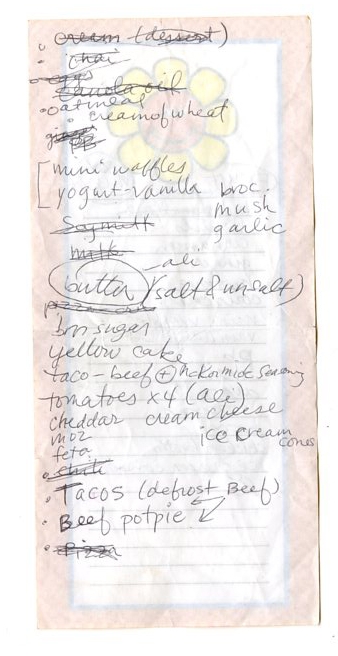 cream (dessert)
chai
eggs
canola oil
oatmeal
creamofwheat
PB
mini waffles
yogurt-vanilla
broc.
mush
garlic
Soymilk
milk
ali
butter (salt & unsalt)
brn sugar
yellow cake
taco - beef +
tomatoes x4 (ali)
cheddar cream cheese
moz ice cream
cones
feta
chili
Tacos (defrost Beef)
Beef potpie
Pizza